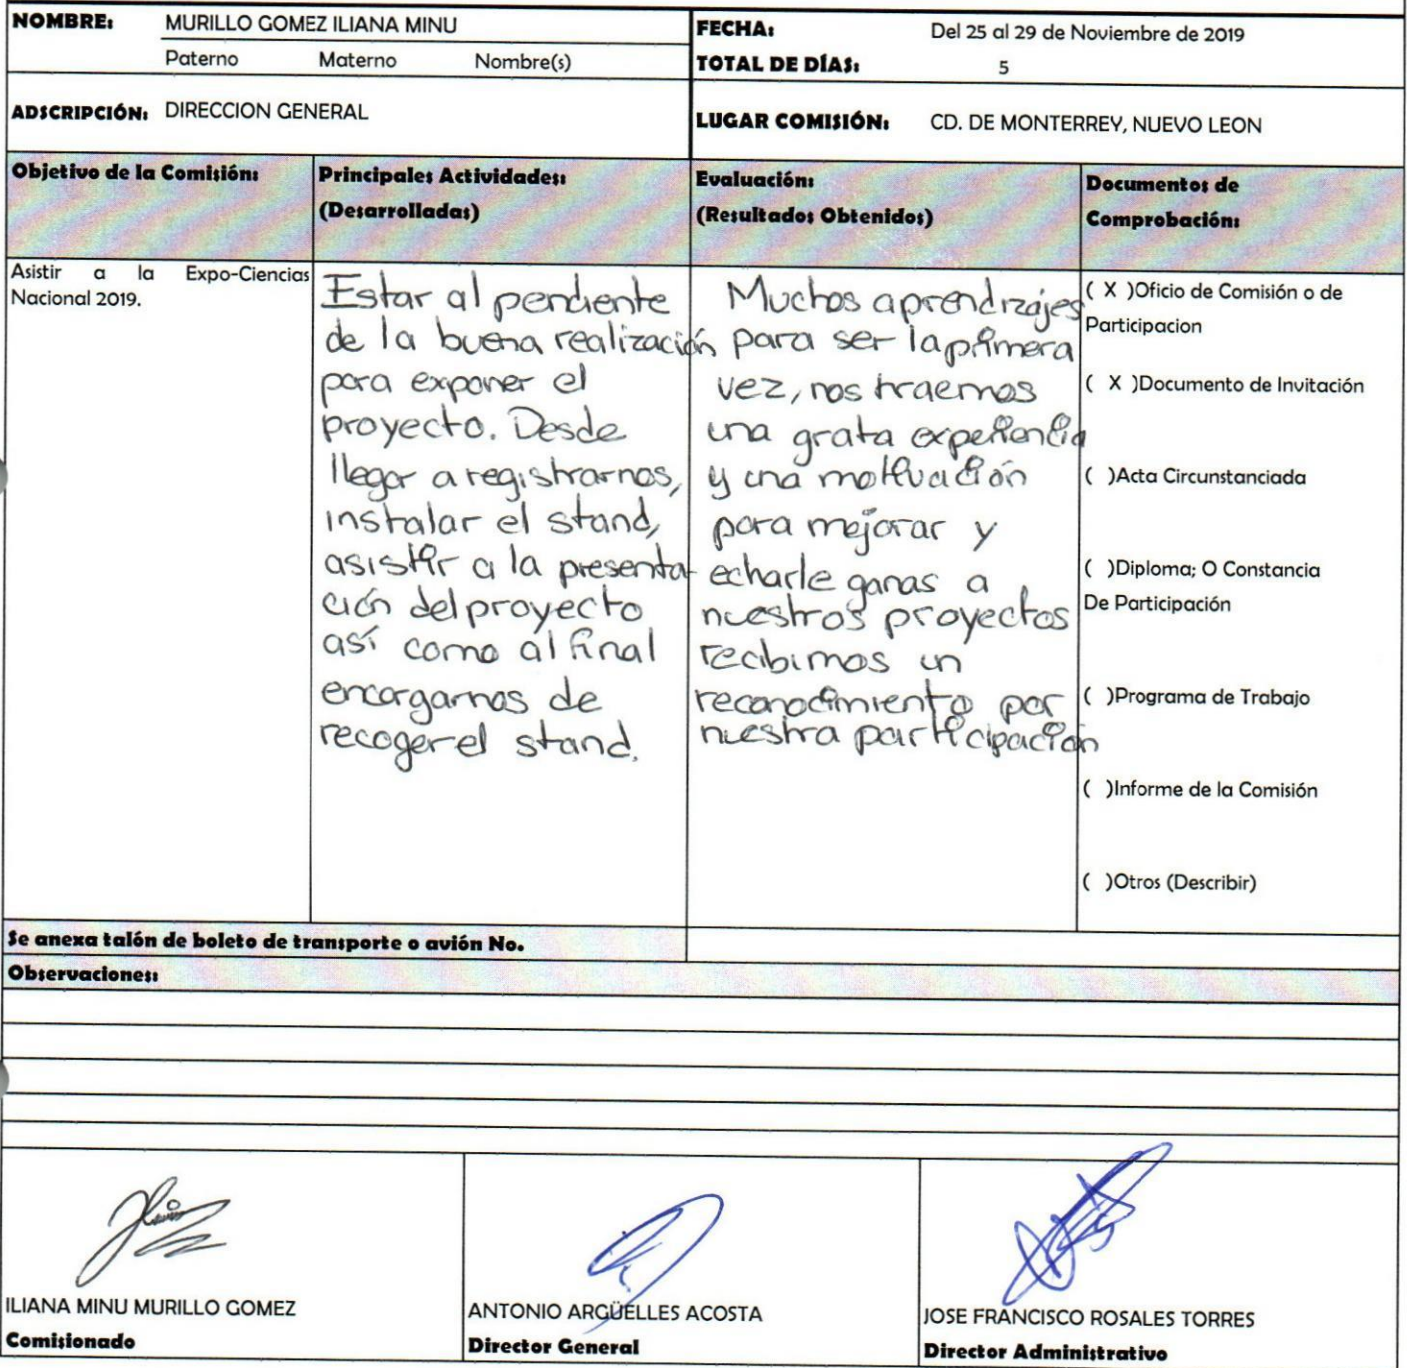 NOMBRE: MURILLO GOMEZ ILIANA MINU
Paterno Materno Nombre(s)
FECHA: Del 25 al 29 de Noviembre de 2019
TOTAL DE DÍAS: 5
ADSCRIPCIÓN: DIRECCION GENERAL
LUGAR COMISIÓN: CD. DE MONTERREY, NUEVO LEON
Objetivo de la Comisión:
Principales Actividades:
(Desarrolladas)
Evaluación:
(Resultados Obtenidos)
Documentos de
Comprobación:
Asistir a la Expo-Ciencias
Nacional 2019.
Estar al pendiente
de la buena realización
para exponer el
proyecto. Desde
llegar a registrarnos,
instalar el stand,
asistir a la presenta-
ción del proyecto
así como al final
encargarnos de
recoger el stand.
Muchos aprendizajes
para ser la primera
vez, nos traemos
una grata experiencia
y una motivación
para mejorar y
echarle ganas a
nuestros proyectos
recibimos un
reconocimiento por
nuestra participación
( X )Oficio de Comisión o de
Participacion
( X )Documento de Invitación
( )Acta Circunstanciada
( )Diploma; O Constancia
De Participación
( )Programa de Trabajo
( )Informe de la Comisión
( )Otros (Describir)
Se anexa talón de boleto de transporte o avión No.
Observaciones:
ILIANA MINU MURILLO GOMEZ
Comisionado
ANTONIO ARGÜELLES ACOSTA
Director General
JOSE FRANCISCO ROSALES TORRES
Director Administrativo